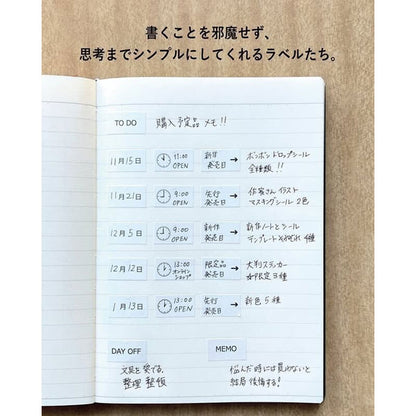 書くことを邪魔せず、
思考までシンプルにしてくれるラベルたち。
TO DO 購入予定品 メモ!!
11月15日 11:00 OPEN 新作発売日 → ボンボンドロップシール 全種類!!
11月21日 9:00 OPEN 先行発売日 → 作家さんイラスト マスキングシール 2色
12月5日 9:00 OPEN 新作発売日 → 新作ノートとシール テンプレート それぞれ 4種
12月12日 13:00 オンラインショップ 限定品発売日 → 大判ステッカー ☆限定3種
1月13日 13:00 OPEN 先行発売日 → 新色 5種
DAY OFF MEMO
文具を愛でる。 悩んだ時には買わないと
整理整頓 結局後悔する!